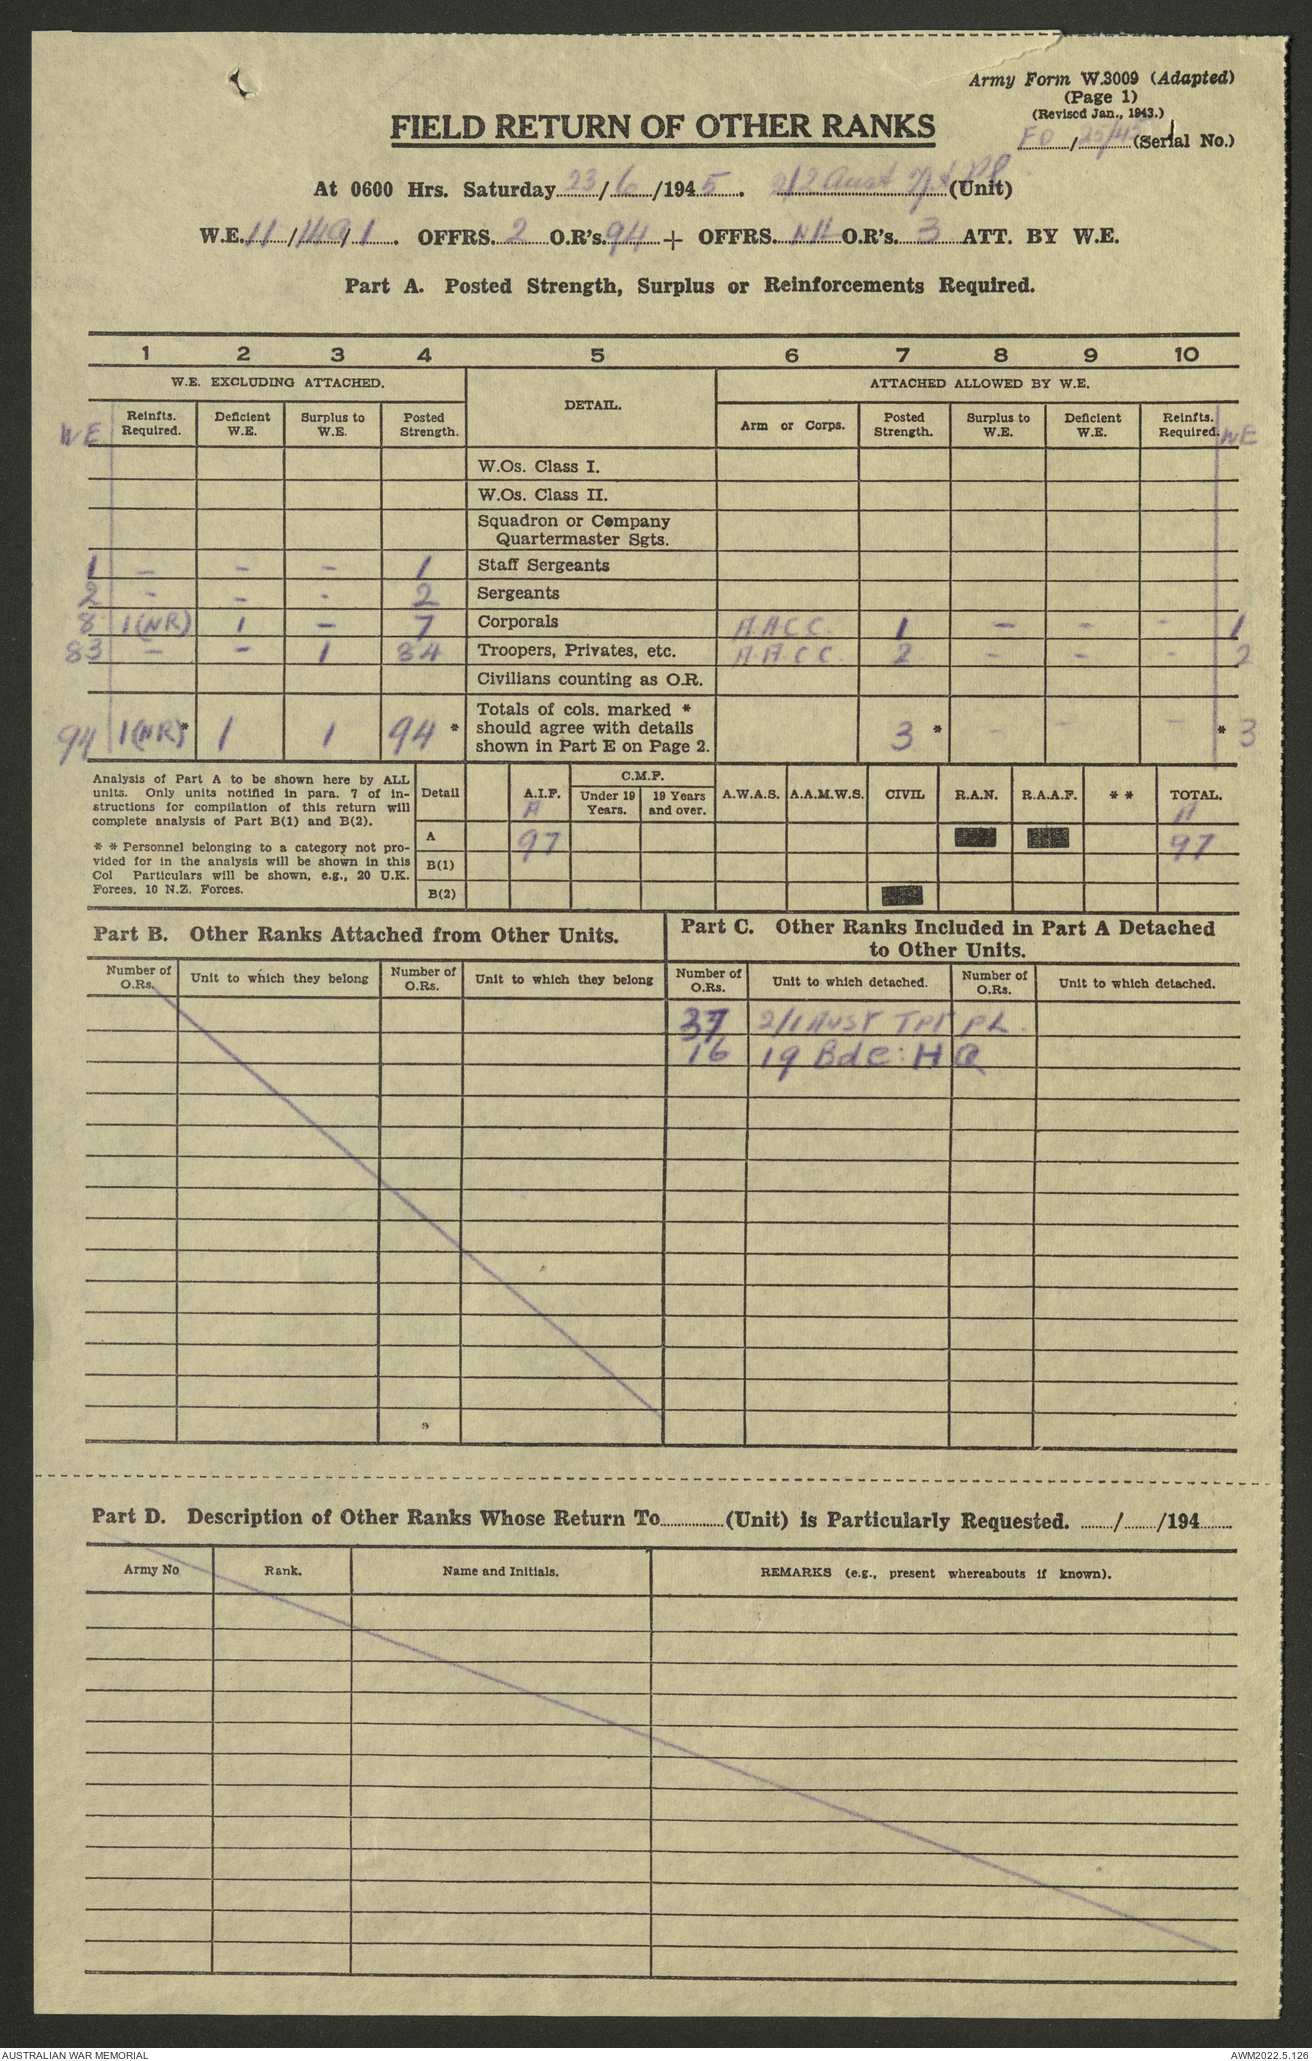 Army Form W.3009 (Adapted)
(Page 1)
(Revised Jan., 1943.)
FIELD RETURN OF OTHER RANKS
FO / 25/45 (Serial No.)
At 0600 Hrs. Saturday 23/6/1945. 2/2 Aust Tpt Pl (Unit)
W.E. 11/149/1. OFFRS. 2 O.R's. 94 + OFFRS. NIL O.R's. 3 ATT. BY W.E.
Part A. Posted Strength, Surplus or Reinforcements Required.
1 2 3 4 5 6 7 8 9 10
W.E. EXCLUDING ATTACHED. DETAIL. ATTACHED ALLOWED BY W.E.
WE Reinfts. Required. Deficient W.E. Surplus to W.E. Posted Strength. Arm or Corps. Posted Strength. Surplus to W.E. Deficient W.E. Reinfts. Required. WE
W.Os. Class I.
W.Os. Class II.
Squadron or Company
Quartermaster Sgts.
1 – – – 1 Staff Sergeants
2 – – – 2 Sergeants
8 1(NR) 1 – 7 Corporals A.A.C.C. 1 – – – 1
83 – – 1 84 Troopers, Privates, etc. A.A.C.C. 2 – – – 2
Civilians counting as O.R.
Totals of cols. marked *
should agree with details
shown in Part E on Page 2.
94 1(NR)* 1 1 94 * 3 * – – – * 3
Analysis of Part A to be shown here by ALL
units. Only units notified in para. 7 of in-
structions for compilation of this return will
complete analysis of Part B(1) and B(2).
* * Personnel belonging to a category not pro-
vided for in the analysis will be shown in this
Col Particulars will be shown, e.g., 20 U.K.
Forces, 10 N.Z. Forces.
Detail A.I.F. C.M.F. A.W.A.S. A.A.M.W.S. CIVIL R.A.N. R.A.A.F. * * TOTAL.
Under 19 Years. 19 Years and over.
A A
A 97 97
B(1)
B(2)
Part B. Other Ranks Attached from Other Units.
Number of O.Rs. Unit to which they belong Number of O.Rs. Unit to which they belong
Part C. Other Ranks Included in Part A Detached
to Other Units.
Number of O.Rs. Unit to which detached. Number of O.Rs. Unit to which detached.
37 2/1 AUST TPT PL.
16 19 Bde: HQ
Part D. Description of Other Ranks Whose Return To (Unit) is Particularly Requested. / /194
Army No Rank. Name and Initials. REMARKS (e.g., present whereabouts if known).
AUSTRALIAN WAR MEMORIAL
AWM2022.5.126